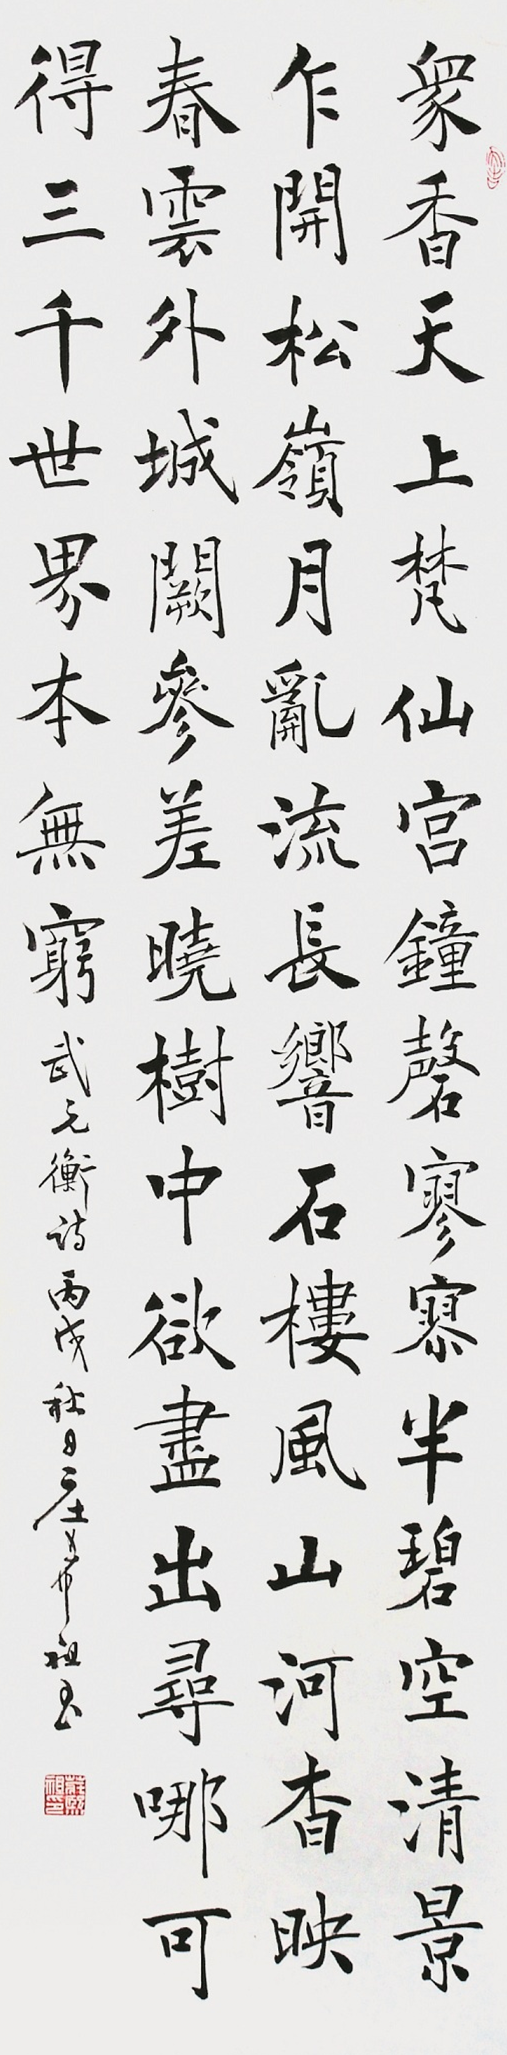 衆香天上梵仙宮鐘磬寥寮半碧空清景
乍開松嶺月亂流長響石樓風山河杳映
春雲外城闕參差曉樹中欲盡出尋哪可
得三千世界本無窮武元衡詩丙戌秋日希祖書